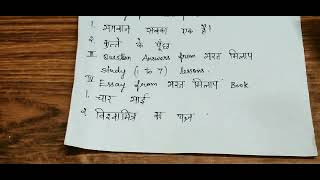 1. भगवान सबका एक है।
2. कुत्ते की पूँछ
III Question Answers from भरत मिलाप
study (1 to 7) lessons.
IV Essay from भरत मिलाप Book
1. चार भाई
2. विश्वामित्र का यज्ञ